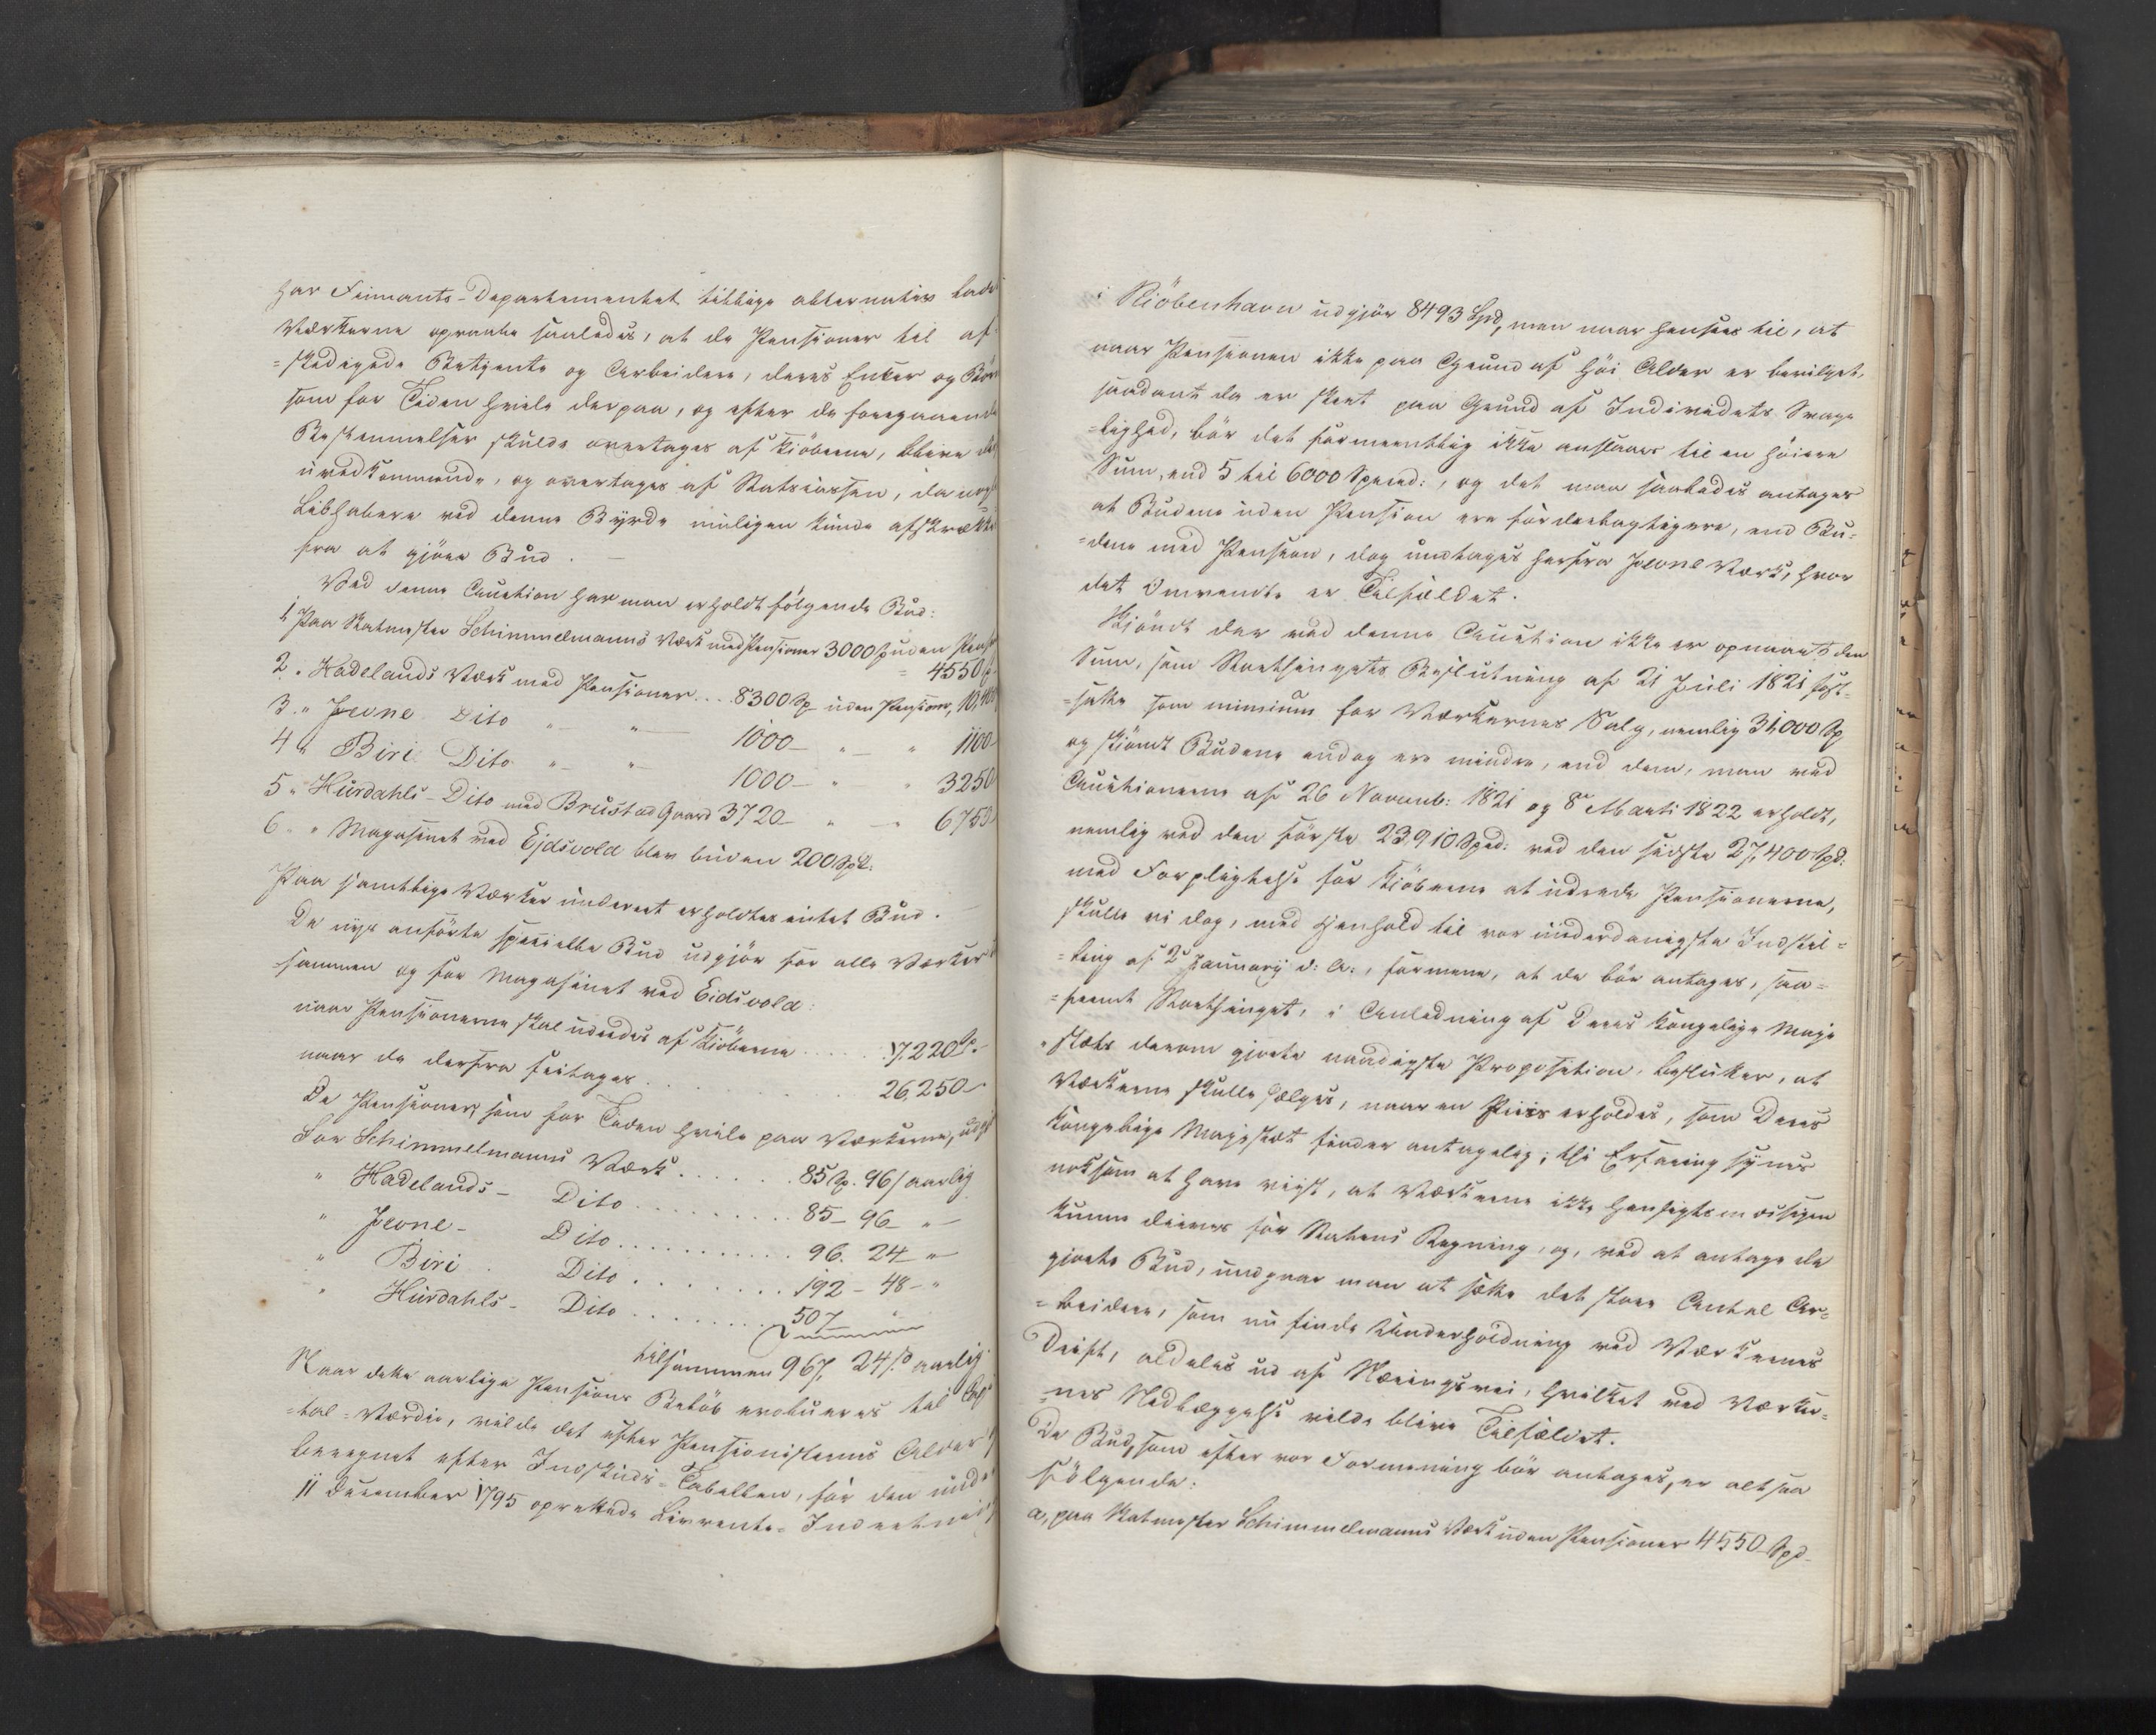 har Finants-Departementet tillige alternativ lade
Værkerne opraabe saaledes, at de Pensioner til af-
=skedigede Betjente og Arbeidere, deres Enker og Börn
som for Tiden hvile derpaa, og efter de foregaaende
Bestemmelser skulde overtages af Kiöberne, blive
uvedkommende, og overtages af Statscassen, da
Liebhabere ved denne Byrde muligen kunde afskrækkes
fra at gjöre Bud. —
Ved denne Auction har man erholdt fölgende Bud:
1, Paa Statmester Schimmelmanns Værk med Pensioner 3000 uden
= 4550
2. " Hadelands Værk med Pensioner .... 8300 Sp uden Pension,
3. " Jevne Dito " — " — 1000 — " — " 1100
4 " Biri Dito " — " — 1000 — " " 3250
5 " Hurdahls - Dito med Brustad Gaard 3720 — " — " 6750
6. " Magasinet ved Ejdsvold blev buden 200 Spd.
Paa samtlige Værker underet erholdtes intet Bud. —
De nys anförte specielle Bud udgjör for alle Værker
sammen og for Magasinet ved Eidsvold:
naar Pensionerne skal udredes af Kiöberne ..... 17,220
naar de derfra fritages ..... 26,250
De Pensioner, som for Tiden hvile paa Værkerne,
For Schimmelmanns Værk ...... 85 Sp. 96 / aarlig
" Hadelands - Dito ......... 85 — 96 — " —
" Jevne - Dito ........... 96. 24 — " —
" Biri Dito ........ 192 — 48 — "
" Hurdahls - Dito ........ 507 "
tilsammen 967, 24 aarlig
Naar dette aarlige Pensions Belöb evalueres til
=tal-Værdie, vilde det efter Pensionisternes Alder
beregnet efter Indskuds-Tabellen, for den under
11 December 1795 oprettede Livrente-
i Kiöbenhavn udgjör 8493 Spd, men naar hensees til, at
naar Pensionen ikke paa Grund af höi Alder er bevilget,
saadant da er skeet paa Grund af Individets Svage
=lighed, bör det formeentlig ikke anslaaes til en höiere
Sum, end 5 til 6000 Specied:, og det maa saaledes antages
at Budene uden Pension ere fordeelagtigere, end Bu-
=dene med Pension, dog undtages herfra Jevne Værk, hvor
det Omvendte er Tilfældet.
Skjöndt der ved denne Auction ikke er opnaaet den
Sum, som Storthingets Beslutning af 21 Juli 1821 fast-
=satte som minimum for Værkernes Salg, nemlig 31,000 Sp
og skjöndt Budene endog ere mindre, end dem, man ved
Auctionerne af 26 Novemb: 1821 og 8de Marti 1822 erholdt,
nemlig ved den förste 23,910 Spd: ved den sidste 27,400 Spd:
med Forpligtelse for Kiöberne at udrede Pensionerne,
skulle vi dog, med Henhold til vor underdanigste Indstil-
=ling af 2 Januarij d: A:, formene, at de bör antages, saa-
=fremt Storthinget, i Anledning af Deres Kongelige Maje
=stæts derom giorte naadigste Proposition, beslutter, at
Værkerne skulle sælges, naar en Priis erholdes, som Deres
Kongelige Majestæt finder antagelig; thi Erfaring synes
noksom at have viist, at Værkerne ikke hensigtsmæssigen
kunne drives for Statens Regning, og, ved at antage de
giorte Bud, undgaar man at sætte det store Antal Ar-
=beidere, som nu finde Underholdning ved Værkernes
Drift, aldeles ud af Næringsvei, hvilket ved Værker-
=nes Nedlæggelse vilde blive Tilfældet.
De Bud, som efter vor Formening bör antages, er altsaa
fölgende:
a, paa Statmester Schimmelmanns Værk uden Pensioner 4550 Spd